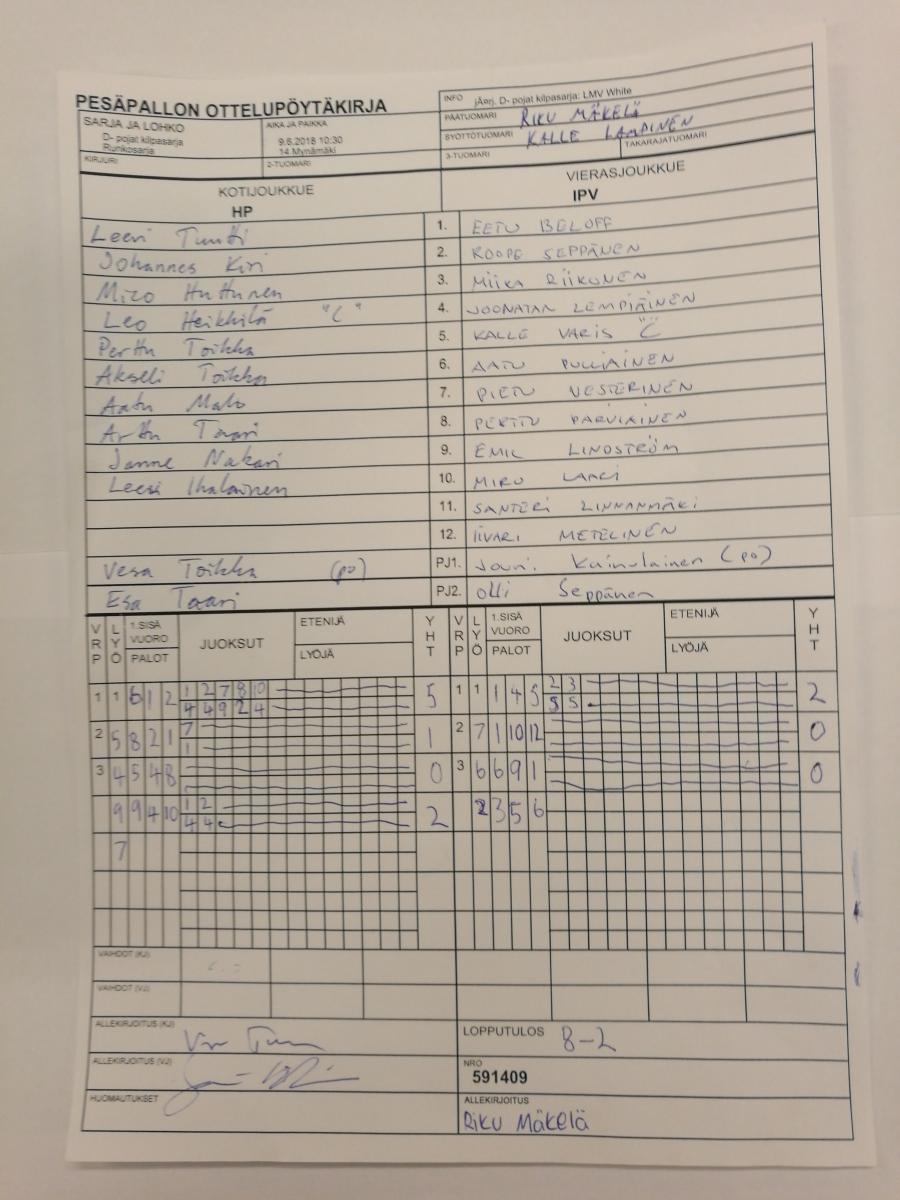 PESÄPALLON OTTELUPÖYTÄKIRJA
INFO jÄerj. D- pojat kilpasarja: LMV White
SARJA JA LOHKO
D- pojat kilpasarja
Runkosarja
AIKA JA PAIKKA
9.6.2018 10:30
14 Mynämäki
PÄÄTUOMARI RIKU MÄKELÄ
SYÖTTÖTUOMARI KALLE LAMPINEN
KIRJURI
2-TUOMARI
3-TUOMARI
TAKARAJATUOMARI
KOTIJOUKKUE
HP
VIERASJOUKKUE
IPV
Leevi Tuutti 1. EETU BELOFF
Johannes Kiri 2. ROOPE SEPPÄNEN
Mico Huttunen 3. MIIKA RIIKONEN
Leo Heikkilä "C" 4. JOONATAN LEMPIÄINEN
Perttu Toikka 5. KALLE VARIS "C"
Akseli Toikka 6. AATU PULLIAINEN
Aatu Malo 7. PIETU VESTERINEN
Arttu Taari 8. PERTTU PARVIAINEN
Janne Nakari 9. EMIL LINDSTRÖM
Leevi Ihalainen 10. MIRO LAARI
11. SANTERI LINNANMÄKI
12. IIVARI METELINEN
Vesa Toikka (po) PJ1. Jouni Kainulainen (po)
Esa Taari PJ2. Olli Seppänen
VRP LYÖ 1.SISÄ VUORO PALOT JUOKSUT ETENIJÄ LYÖJÄ YHT VRP LYÖ 1.SISÄ VUORO PALOT JUOKSUT ETENIJÄ LYÖJÄ YHT
1 1 6 1 2 1 2 7 8 10 5 1 1 1 4 5 2 3 2
4 4 9 2 4 5 5
2 5 8 2 1 7 1 2 7 1 10 12 0
1
3 4 5 4 8 0 3 6 6 9 1 0
9 9 4 10 1 2 2 2 3 5 6
4 4
7
VAIHDOT (KJ)
VAIHDOT (VJ)
ALLEKIRJOITUS (KJ)
LOPPUTULOS 8-2
ALLEKIRJOITUS (VJ)
NRO
591409
HUOMAUTUKSET
ALLEKIRJOITUS
Riku Mäkelä